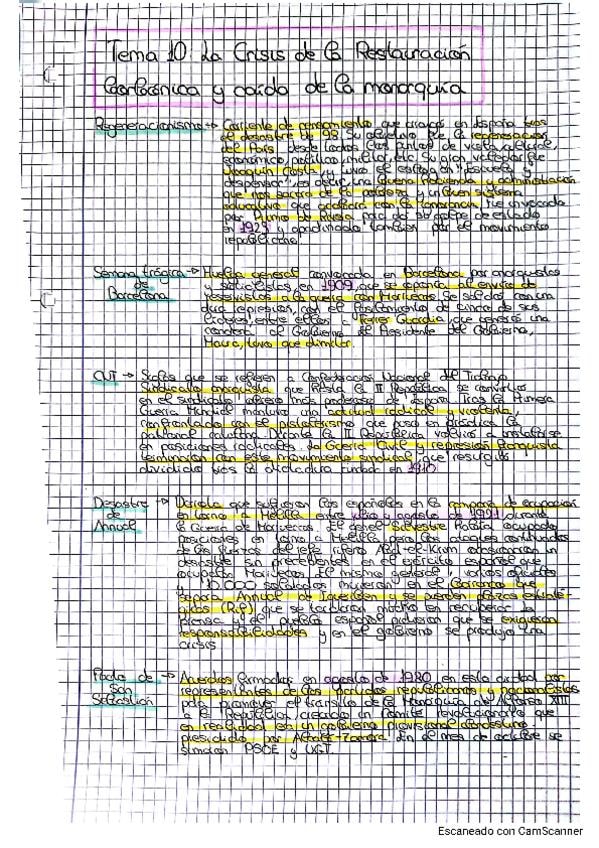 Tema 10: La Crisis de la Restauración
y caída de la monarquía
Regeneracionismo → Corriente de pensamiento que en España tras
el desastre de 98. Su objetivo fue la regeneración
del País desde todos los puntos de vista
económico, político, militar, etc. Su gran fue
Joaquín Costa, y tuvo el "escuela y
despensa", es decir, una buena Hacienda y administración
que nos de la y un buen sistema
educativo que con la Fue invocada
por Primo de Rivera para dar su golpe de estado
en 1923 y también por el movimiento
republicano.
Semana trágica → Huelga general convocada en Barcelona por anarquistas
de y socialistas en 1909, que se oponía al envío de
Barcelona reservistas a la guerra con Marruecos. Se saldó con una
dura represión, con el de cinco de sus
líderes, entre ellos a Ferrer Guardia, que generó una
al Gobierno. El Presidente del Gobierno,
Maura, tuvo que dimitir.
CNT → Siglas que se refieren a Confederación Nacional del Trabajo.
Sindicato anarquista que hasta la II República se convirtió
en el sindicato obrero más poderoso de España. Tras la Primera
Guerra Mundial mantuvo una actitud radical y violenta,
confrontado con el pistolerismo que puso en práctica la
patronal catalana. Durante la II República volvió a
en posiciones radicales. La Guerra Civil y represión franquista
terminaron con este movimiento sindical, que resurgió
dividido tras la dictadura. Fundado en 1910.
Desastre → Derrota que sufrieron los españoles en la campaña de ocupación
de en torno a Melilla entre julio y agosto de 1921 durante
Annual la Guerra de Marruecos. El general Silvestre había ocupado
posiciones en torno a Melilla, pero los ataques continuados
de las fuerzas del jefe rifeño Abd-el-Krim un
desastre sin precedentes en el ejército español que
ocupaba Marruecos. El mismo general, varios oficiales
y 10.000 soldados murieron en el Barranco que
separa Annual de Igueriben y se perdieron plazas
(Rif) que se tardaron mucho en recuperar. La
prensa y el pueblo español pidieron que se exigiesen
responsabilidades y en el gobierno se produjo una
crisis.
Pacto de → Acuerdos firmados en agosto de 1930 en esta ciudad por
San representantes de los partidos republicanos y nacionalistas
Sebastián para promover el tránsito de la Monarquía de Alfonso XIII
a la República, creando un Comité revolucionario que
en realidad era un gobierno provisional clandestino
presidido por Alcalá-Zamora. En el mes de octubre se
sumaron PSOE y UGT.
Escaneado con CamScanner